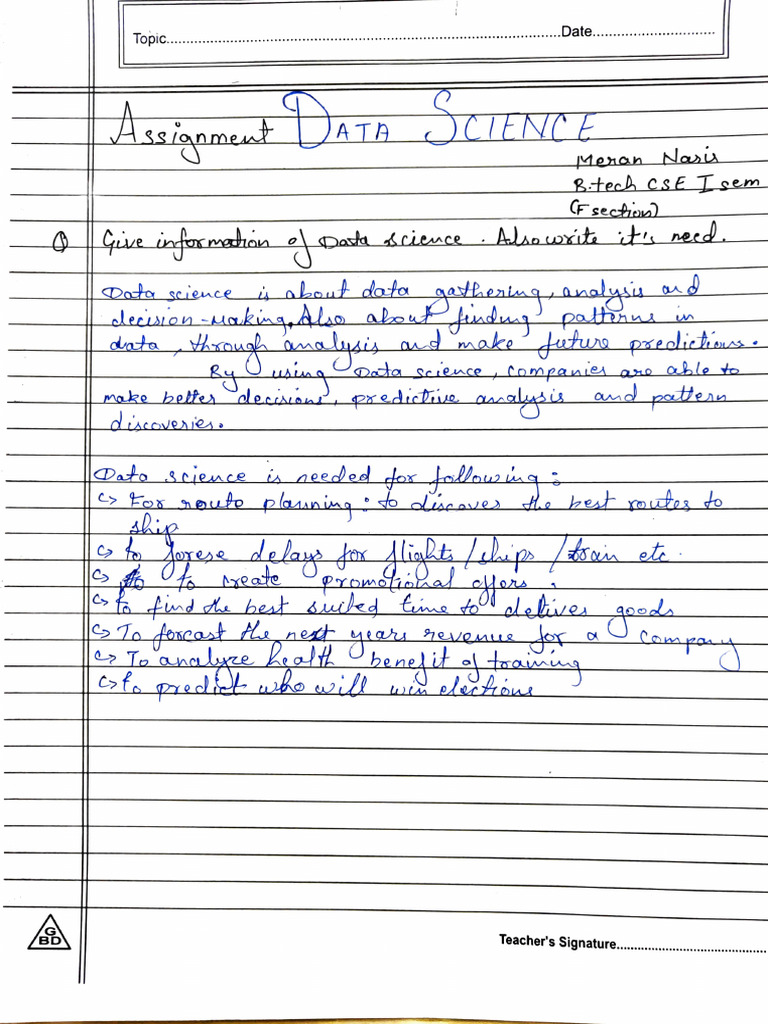 Topic....................................................................................................Date...............................
Assignment DATA SCIENCE
Meran Nasir
B.tech CSE I sem
(F section)
Q Give information of Data science. Also write it's need.
Data science is about data gathering, analysis and
decision-making. Also about finding patterns in
data, through analysis and make future predictions.
By using Data science, companies are able to
make better decisions, predictive analysis and pattern
discoveries.
Data science is needed for following:
↪ For route planning: to discover the best routes to
ship
↪ to forese delays for flights/ships/train etc.
↪ to create promotional offers.
↪ to find the best suited time to deliver goods
↪ To forcast the next years revenue for a company
↪ To analyze health benefit of training
↪ to predict who will win elections
G
BD
Teacher's Signature.......................................